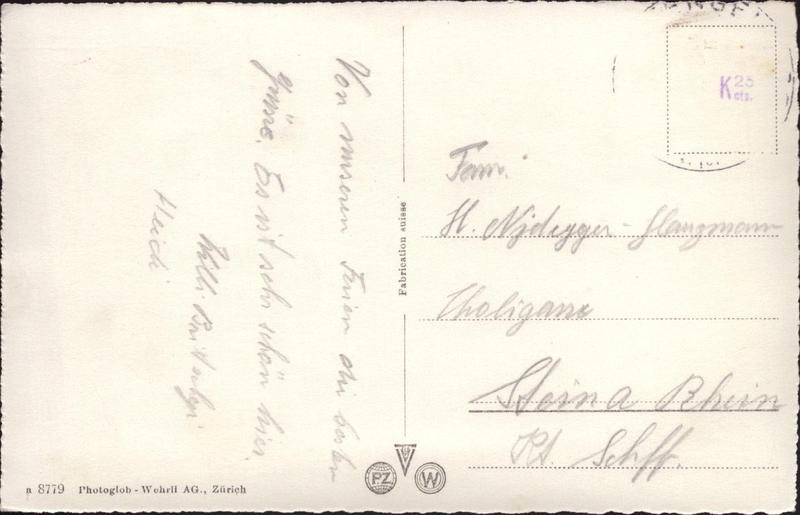 Von unseren Ferien die besten
Grüsse. Es ist sehr schön hier.
Willi
Heidi
Fabrication suisse
K 25 cts.
Fam.
H. Nydegger-Glanzmann
Stein a Rhein
Kt. Schff.
PZ
W
n 8779 Photoglob - Wehrli AG., Zürich